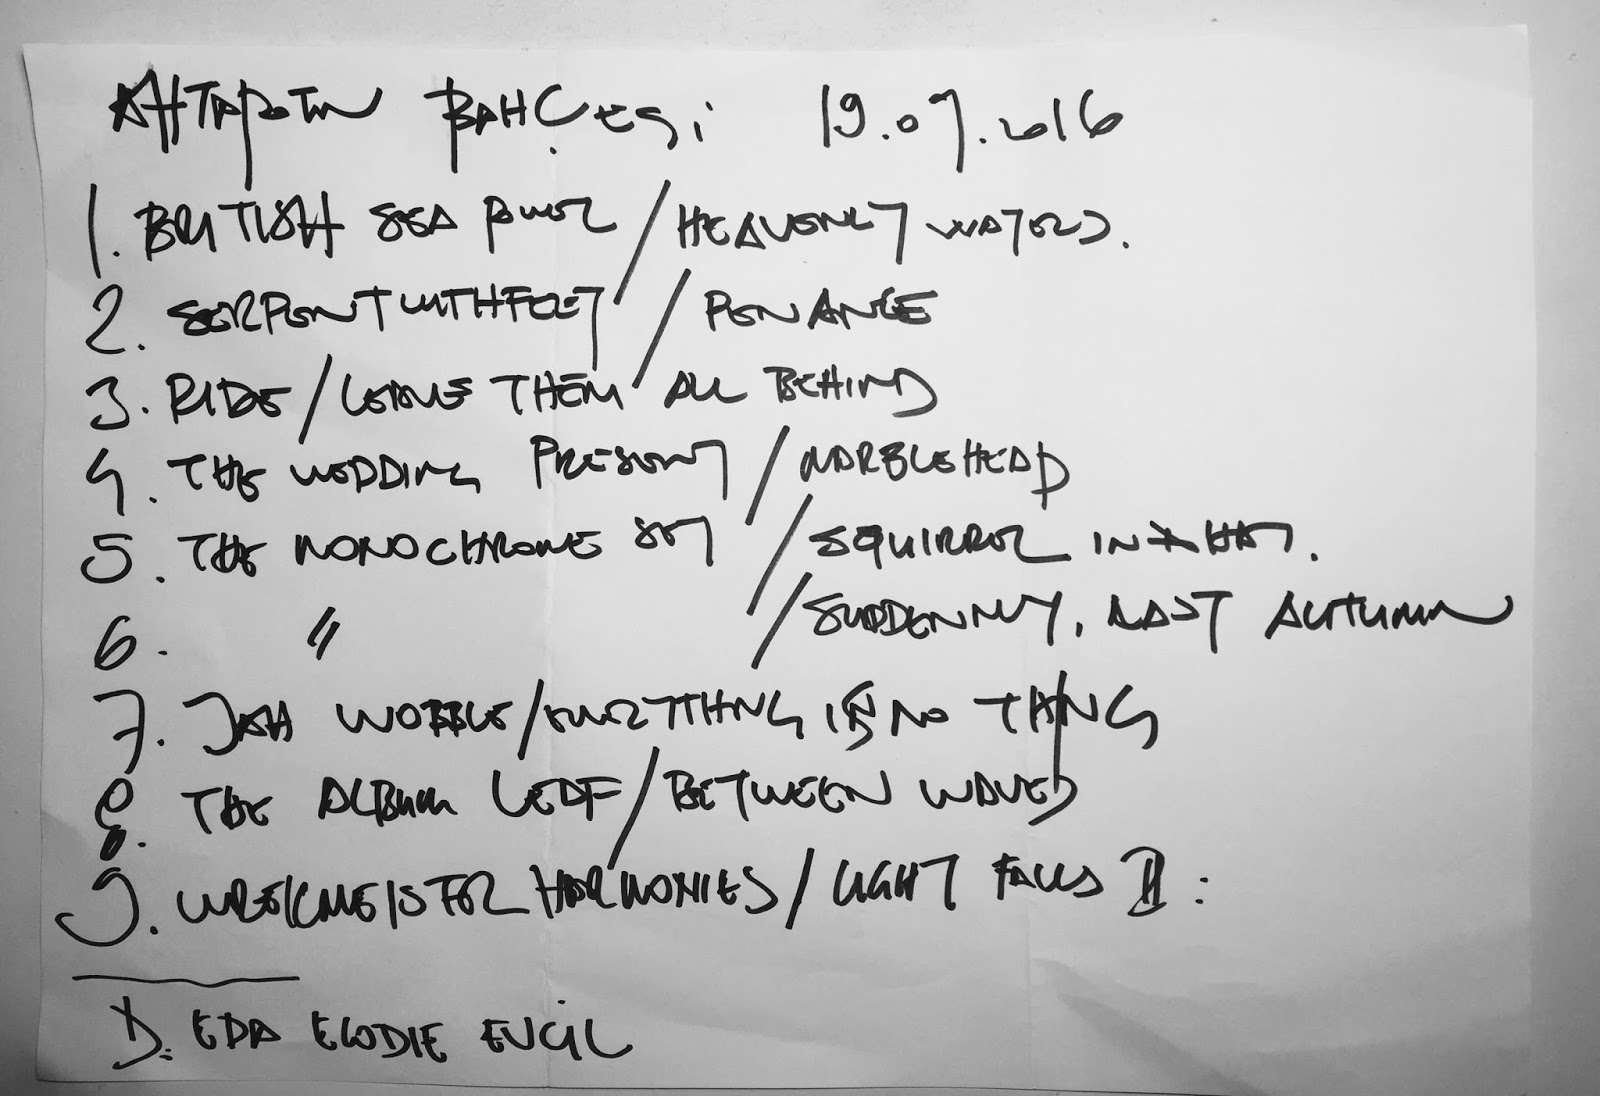 AHTAPOTUN BAHÇESi 19.07.2016
1. BRITISH SEA POWER / HEAVENLY WATERS.
2. SERPENTWITHFEET / PENANCE
3. RIDE / LEAVE THEM ALL BEHIND
4. THE WEDDING PRESENT / MARBLEHEAD
5. THE MONOCHROME SET / SQUIRREL IN A HAT.
6. " / SUDDENLY, LAST AUTUMN
7. JAH WOBBLE / EVERYTHING IS NO THING
8. THE ALBUM LEAF / BETWEEN WAVES
9. WREKMEISTER HARMONIES / LIGHT FALLS II:
D: EDA ELODIE EVCİL